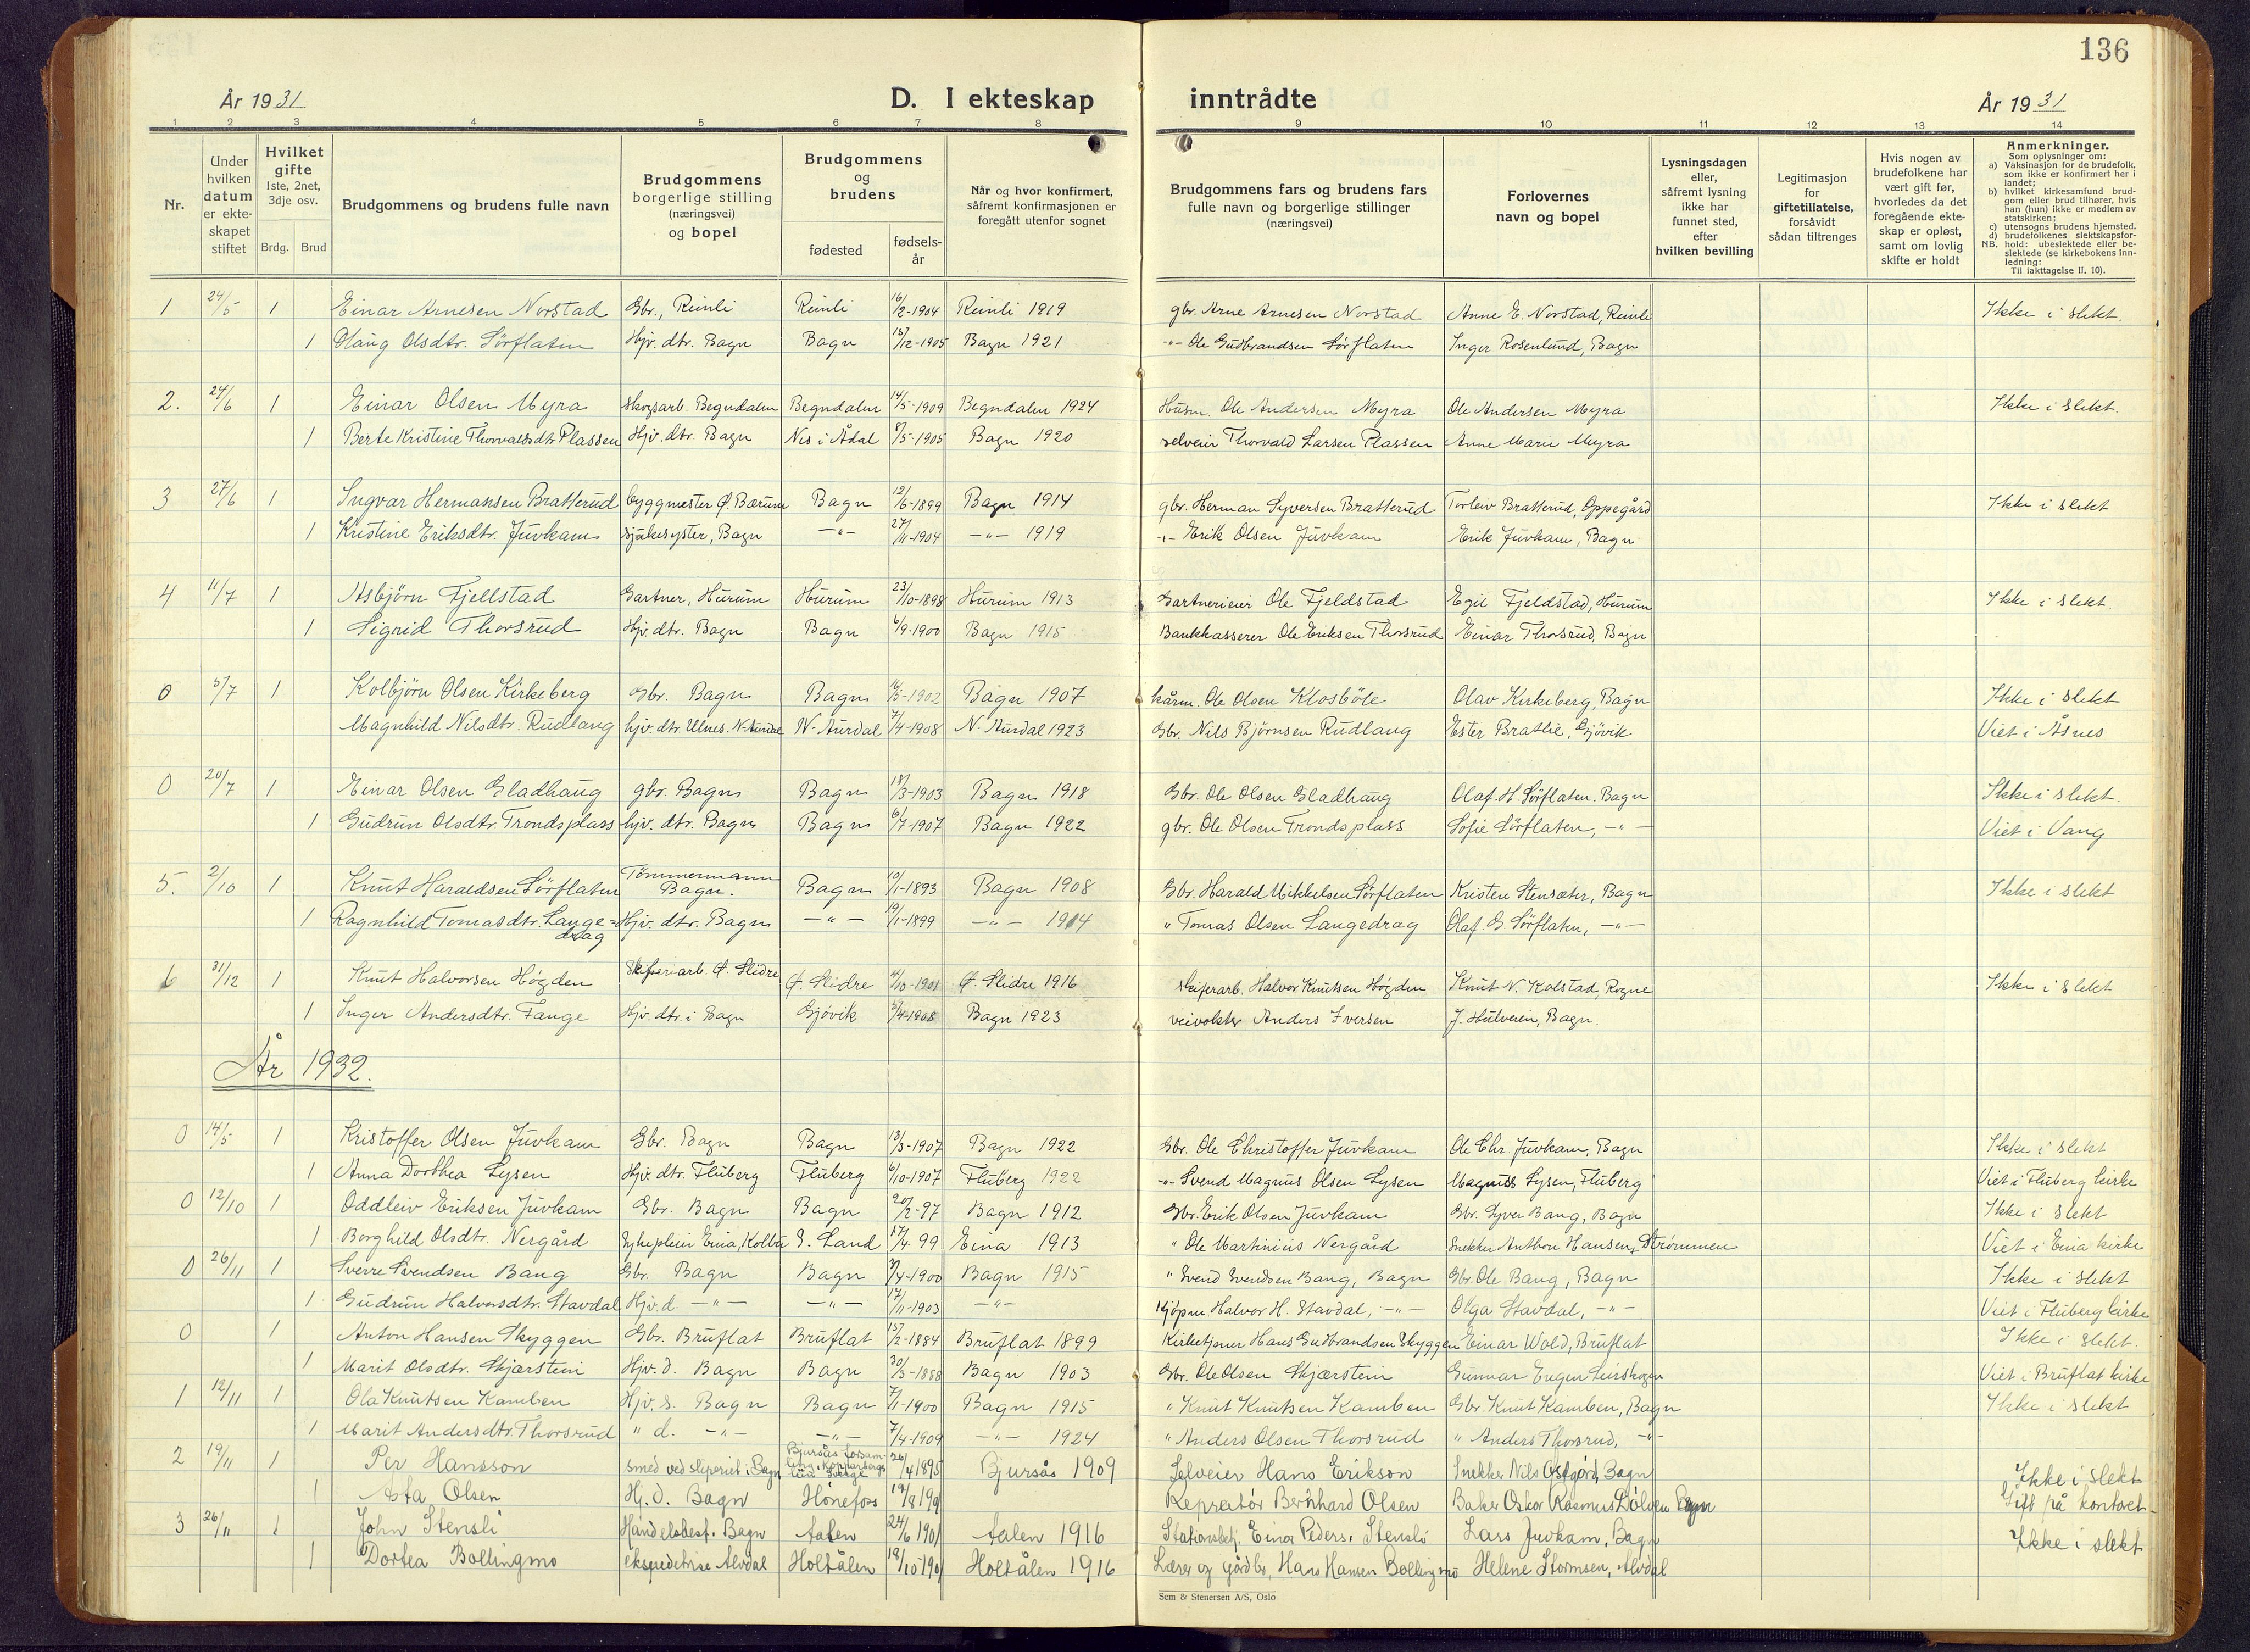 136
År 1931 D. I ekteskap inntrådte År 1931
1 2 3 4 5 6 7 8 9 10 11 12 13 14
Nr.
Under hvilken datum er ekteskapet stiftet
Hvilket gifte 1ste, 2net, 3dje osv. Brdg. Brud
Brudgommens og brudens fulle navn
Brudgommens borgerlige stilling (næringsvei) og bopel
Brudgommens og brudens fødested fødselsår
Når og hvor konfirmert, såfremt konfirmasjonen er foregått utenfor sognet
Brudgommens fars og brudens fars fulle navn og borgerlige stillinger (næringsvei)
Forlovernes navn og bopel
Lysningsdagen eller, såfremt lysning ikke har funnet sted, efter hvilken bevilling
Legitimasjon for giftetillatelse, forsåvidt sådan tiltrenges
Hvis nogen av brudefolkene har vært gift før, hvorledes da det foregående ekteskap er opløst, samt om lovlig skifte er holdt
Anmerkninger.
Som oplysninger om:
a) Vaksinasjon for de brudefolk, som ikke er konfirmert her i landet;
b) hvilket kirkesamfund brudgom eller brud tilhører, hvis han (hun) ikke er medlem av statskirken;
c) utensogns brudens hjemsted.
d) brudefolkenes slektskapsforhold: ubeslektede eller beslektede (se kirkebokens Innledning:
NB. Til iakttagelse II, 10).
1 24/5 1 Einar Arnesen Norstad Gbr., Reinli Reinli 16/2-1904 Reinli 1919 gbr. Arne Arnesen Norstad Anne E. Norstad, Reinli Ikke i slekt.
1 Olaug Olsdtr. Sörflaten Hjv. dtr. Bagn Bagn 15/12-1905 Bagn 1921 -"- Ole Gudbrandsen Sörflaten Inger Rosenlund, Bagn
2. 24/6 1 Einar Olsen Myra Skogsarb. Begndalen Begndalen 14/5-1909 Begndalen 1924 Husm. Ole Andersen Myra Ole Andersen Myra Ikke i slekt.
1 Berte Kristine Thorvaldsdtr. Plassen Hjv. dtr. Bagn Nes i Ådal /5-1905 Bagn 1920 selveier Thorvald Larsen Plassen Anne Marie Myra
3 27/6 1 Ingvar Hermansen Bratterud byggmester Ø. Bærum Bagn 12/6-1899 Bagn 1914 gbr. Herman Syversen Bratterud Torleiv Bratterud, Oppegård Ikke i slekt
1 Kristine Eriksdtr. Juvkam sjukesyster, Bagn -"- 27/11-1904 -"- 1919 -"- Erik Olsen Juvkam Erik Juvkam, Bagn
4 11/7 1 Asbjörn Fjellstad Gartner, Hurum Hurum 23/10-1898 Hurum 1913 Gartnerieier Ole Fjeldstad Egil Fjeldstad, Hurum Ikke i slekt.
1 Sigrid Thorsrud Hjv. dtr. Bagn Bagn 6/9-1900 Bagn 1915 Bankkasserer Ole Eriksen Thorsrud Einar Thorsrud, Bagn
0 5/7 1 Kolbjörn Olsen Kirkeberg Gbr. Bagn Bagn 1902 Bagn 1907 kårm. Ole Olsen Klosböle Olav Kirkeberg, Bagn Ikke i slekt
Magnhild Nilsdtr. Rudlang hjv. dtr. Ulnes. N-Aurdal N-Aurdal 7/4-1908 N. Aurdal 1923 Gbr. Nils Bjørnsen Rudlang Ester Bratlie, Gjövik Viet i Åsnes
0 20/7 1 Einar Olsen Gladhaug gbr. Bagn Bagn 18/3-1903 Bagn 1918 Gbr. Ole Olsen Gladhaug Olaf. H. Sörflaten. Bagn Ikke i slekt.
1 Gudrun Olsdtr. Trondsplass hjv. dtr. Bagn Bagn 6/7-1907 Bagn 1922 gbr. Ole Olsen Trondsplass Sofie Sörflaten, -"- Viet i Vang
5. 2/10 1 Knut Haraldsen Sörflaten Tömmermann Bagn. Bagn 10/1-1893 Bagn 1908 Gbr. Harald Mikkelsen Sörflaten Kristen Stensæter, Bagn Ikke i slekt
1 Ragnhild Tomasdtr. Langedrag Hjv. dtr. Bagn -"- 19/1-1899 -"- 1914 " Tomas Olsen Langedrag Olaf. G. Sörflaten, -"-
6 31/12 1 Knut Halvorsen Högden Skiferiarb. Ø. Slidre Ø. Slidre /10-1901 Ø. Slidre 1916 skiferarb. Halvor Knutsen Högden Knut N. Kolstad, Rogne Ikke i slekt
1 Inger Andersdtr. Fange Hjv. dtr. i Bagn Gjövik /4-1908 Bagn 1923 veivokter Anders Iversen J. Hulveien, Bagn.
År 1932.
0 14/5 1 Kristoffer Olsen Juvkam Gbr. Bagn Bagn 13/3-1907 Bagn 1922 Gbr. Ole Christoffer Juvkam Ole Chr. Juvkam, Bagn Ikke i slekt
1 Anna Dorthea Lysen Hjv. dtr. Fluberg Fluberg 6/10-1907 Fluberg 1922 -"- Svend Magnus Olsen Lysen Magnus Lysen, Fluberg Viet i Fluberg kirke
0 12/10 1 Oddleiv Eriksen Juvkam Gbr. Bagn Bagn 20/2-97 Bagn 1912 Gbr. Erik Olsen Juvkam Gbr. Syver Bang, Bagn Ikke i slekt
1 Borghild Olsdtr. Nergård Sykepleier Eina, Kolbu S. Land 17/4 99 Eina 1913 " Ole Martinius Nergård Snekker Anthon Hansen, Strømmen Viet i Eina kirke
0 26/11 1 Sverre Svendsen Bang Gbr. Bagn Bagn /4-1900 Bagn 1915 " Svend Svendsen Bang, Bagn Gbr. Ole Bang, Bagn Ikke i slekt
1 Gudrun Halvorsdtr. Stavdal Hjv. d. -"- -"- 17/11-1903 -"- Kjöpm. Halvor H. Stavdal, -"- Olga Stavdal, -"- Viet i Fluberg kirke
0 1 Anton Hansen Skyggen Gbr. Bruflat Bruflat 15/2-1884 Bruflat 1899 Kirketjener Hans Gudbrandsen Skyggen Einar Wold, Bruflat Ikke i slekt.
1 Marit Olsdtr. Skjærstein Hjv. d. Bagn Bagn 30/5-1888 Bagn 1903 Gbr. Ole Olsen Skjærstein Gunnar Leirskogen Viet i Bruflat kirke
1 12/11 1 Ola Knutsen Kamben Hjv. s. Bagn Bagn 7/11-1900 Bagn 1915 " Knut Knutsen Kamben Gbr. Knut Kamben, Bagn Ikke i slekt
1 Marit Andersdtr. Thorsrud " d. -"- -"- 7/4-1909 -"- 1924 " Anders Olsen Thorsrud " Anders Thorsrud, -"-
2 19/11 1 Per Hansson smed ved sliperiet i Bagn Bjursås forsamling, Kopparbergs län Sverge 26/4 1895 Bjursås 1909 Selveier Hans Erikson Snekker Nils Østgård, Bagn Ikke i slekt
1 Asta Olsen Hj. d. Bagn Hönefoss 19/8 190 Repreatör Bernhard Olsen Baker Oskar Rasmus Dölven Bagn Gift på kontoret
3 26/11 1 John Stensli Handelsbest. Bagn Aalen 24/6 1901 Aalen 1916 Stationsbetj. Einar Peders. Stensli Lars Juvkam, Bagn Ikke i slekt
1 Dortea Bollingmo ekspeditrise Alvdal Holtålen 19/10 1901 Holtålen 1916 Lærer og gårdbr. Hans Hansen Bollingmo Helene Stormsen, Alvdal
Sem & Stenersen A/S, Oslo